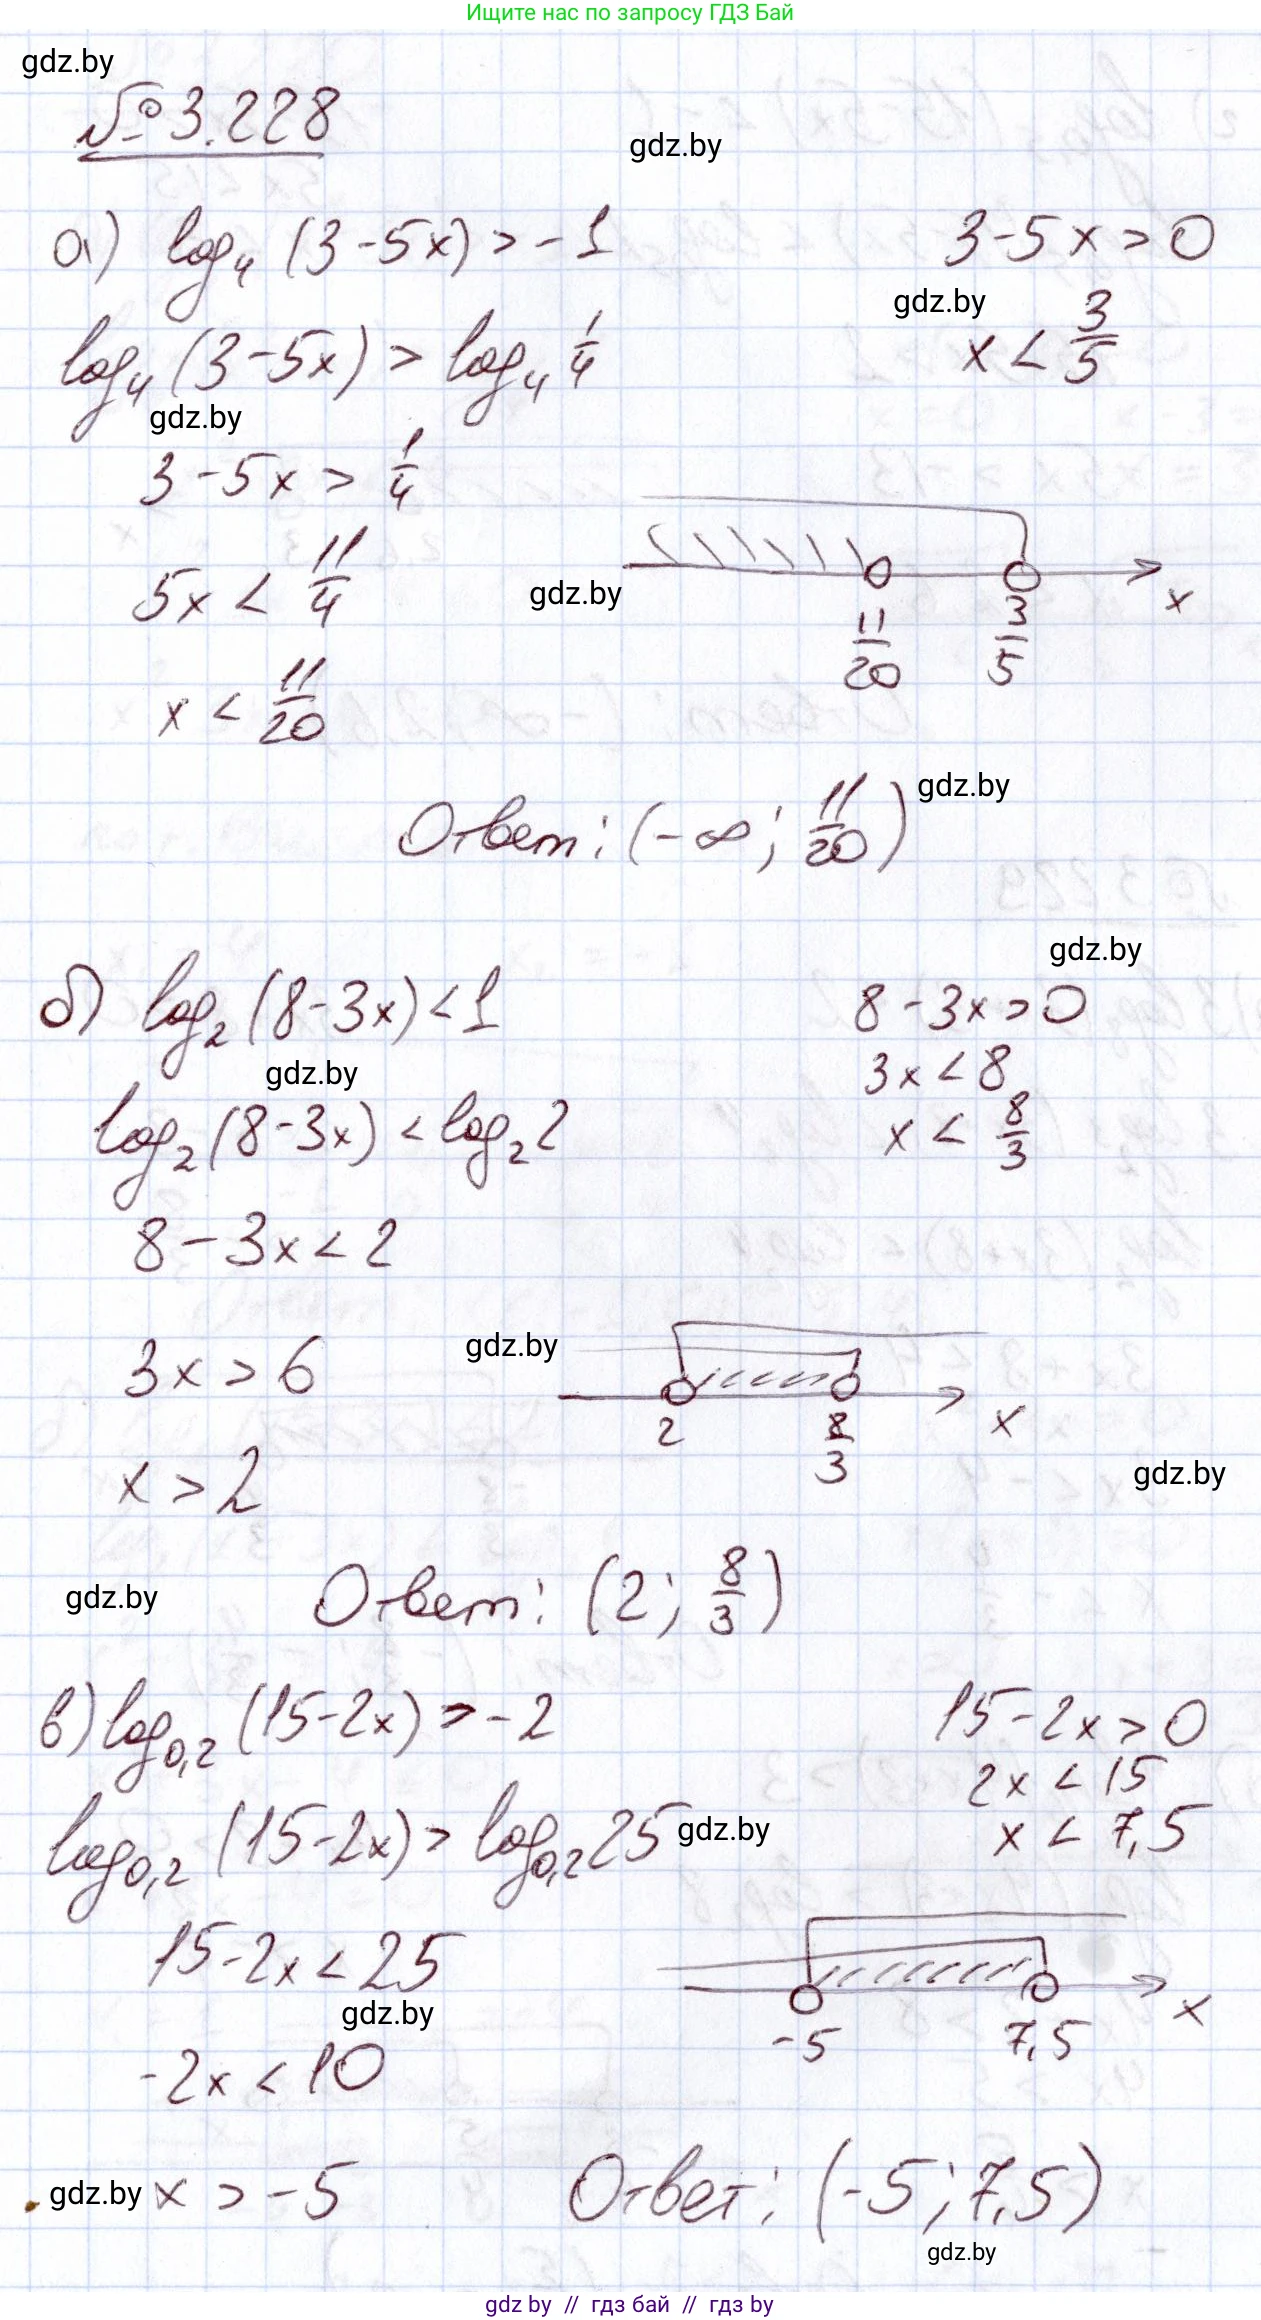 Ищите нас по запросу ГДЗ Бай
gdz.by
№ 3.228
gdz.by
а) log₄ (3-5x) > -1
3-5x > 0
gdz.by
log₄ (3-5x) > log₄ 1/4
x < 3/5
gdz.by
3-5x > 1/4
5x < 11/4
gdz.by
11/20 3/5 x
x < 11/20
gdz.by
Ответ: (-∞; 11/20)
gdz.by
б) log₂ (8-3x) < 1
8-3x > 0
gdz.by
3x < 8
log₂ (8-3x) < log₂ 2
x < 8/3
8-3x < 2
gdz.by
3x > 6
2 8/3 x
gdz.by
x > 2
gdz.by
Ответ: (2; 8/3)
в) log₀,₂ (15-2x) > -2
15-2x > 0
2x < 15
log₀,₂ (15-2x) > log₀,₂ 25
gdz.by
x < 7,5
15-2x < 25
gdz.by
-5 7,5 x
-2x < 10
gdz.by
x > -5
Ответ: (-5; 7,5)
gdz.by
gdz by // гдз бай // гдз by